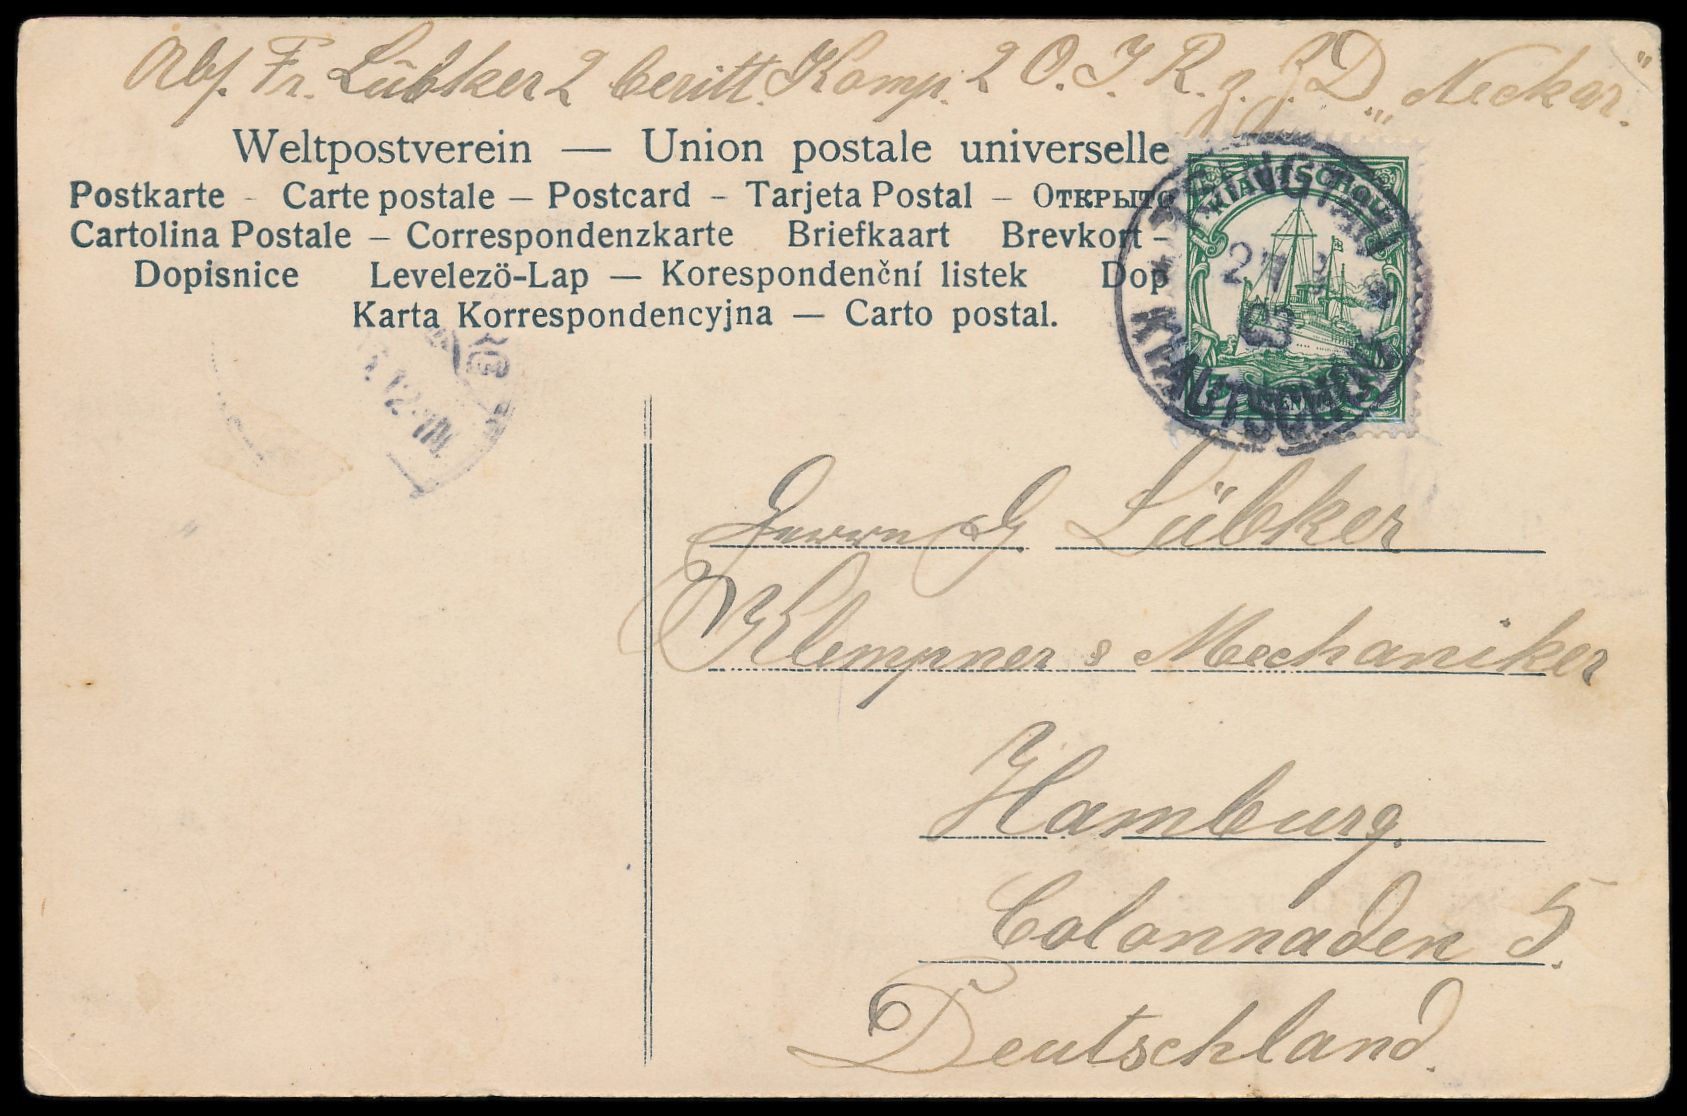 Abs. Fr. Lübker 2 beritt. Komp. 2 O. I. R. z. Z. D. „Neckar".
Weltpostverein — Union postale universelle
Postkarte - Carte postale – Postcard - Tarjeta Postal - Открыто
Cartolina Postale – Correspondenzkarte Briefkaart Brevkort –
Dopisnice Levelezö-Lap — Korespondenční listek Dop
Karta Korrespondencyjna — Carto postal.
KIAUTSCHOU
TSINGTAU
KIAUTSCHOU
12-1N.
Herrn G. Lübker
Klempner & Mechaniker
Hamburg.
Colonnaden 5.
Deutschland.